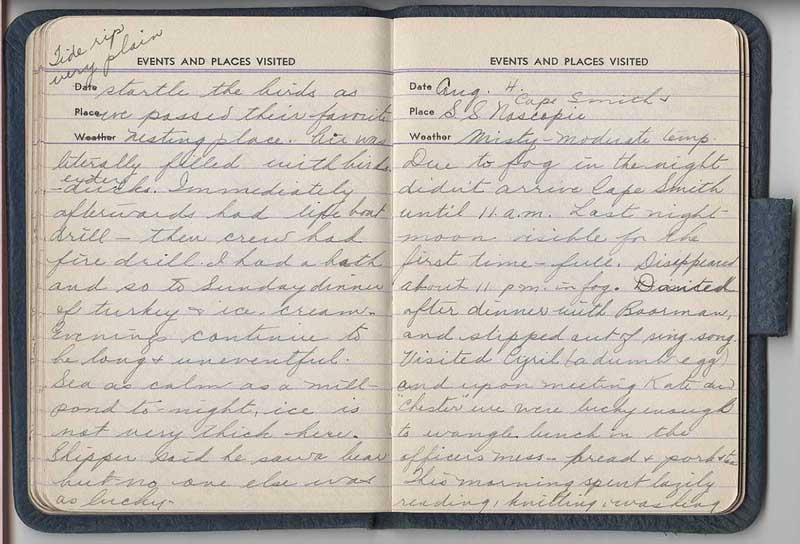 Tide rip
very plain
EVENTS AND PLACES VISITED
Date startle the birds as
Place we passed their favorite
Weather nesting place. Air was
literally filled with birds
- eider
ducks. Immediately
afterwards had life boat
drill - then crew had
fire drill. I had a bath
and so to Sunday dinner
of turkey & ice cream.
Evenings continue to
be long & uneventful.
Sea as calm as a mill-
pond to-night, ice is
not very thick here.
Skipper said he saw a bear
but no one else was
as lucky-
EVENTS AND PLACES VISITED
Date Aug. 4.
Cape Smith &
Place S S Nascopie
Weather Misty - moderate temp.
Due to fog in the night
didn't arrive Cape Smith
until 11 a.m. Last night
moon visible for the
first time - full. Disappeared
about 11 p.m. in fog.
after dinner with Boorman,
and slipped out of sing song.
Visited Cyril (a dumb egg)
and upon meeting Kate and
"Chester" we were lucky enough
to wangle lunch in the
officers mess - bread & pork & tea
This morning spent lazily
reading, knitting, washing